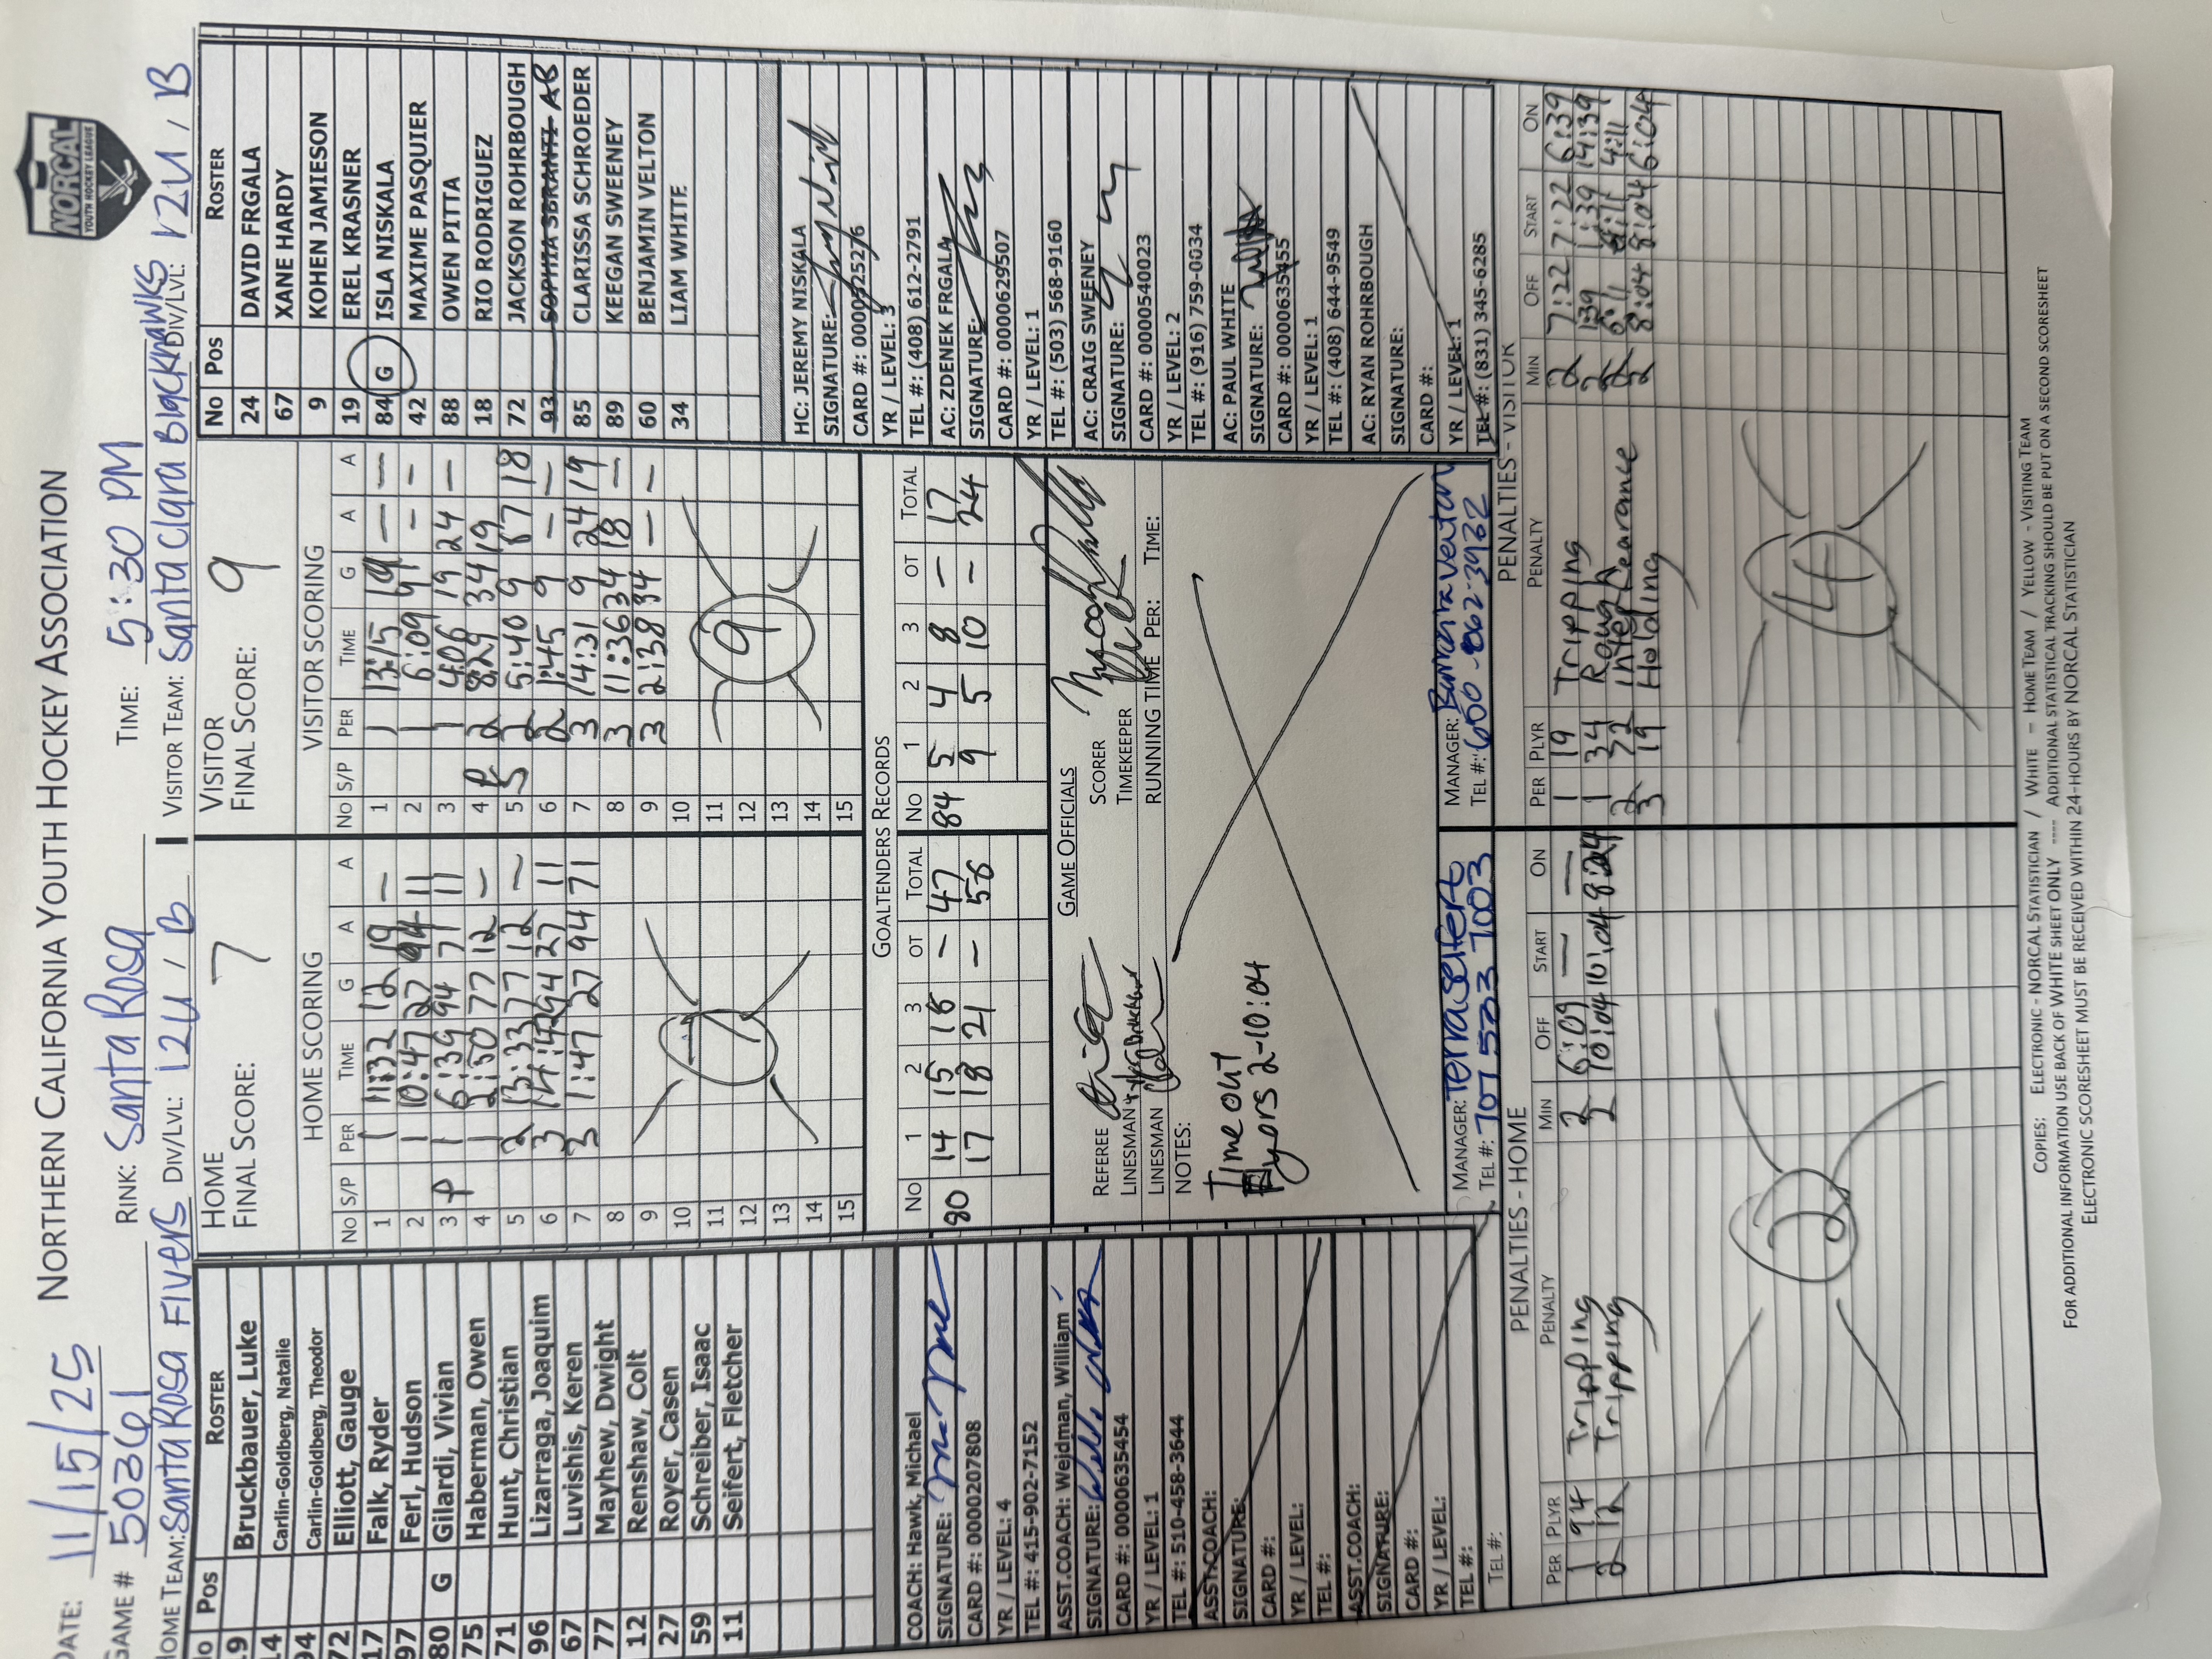 NORTHERN CALIFORNIA YOUTH HOCKEY ASSOCIATION
NORCAL
YOUTH HOCKEY LEAGUE
DATE: 11/15/25 RINK: Santa Rosa TIME: 5:30 PM
GAME # 50361
HOME TEAM: Santa Rosa Flyers DIV/LVL: 12U / B
VISITOR TEAM: Santa Clara Blackhawks DIV/LVL: 12U / B
No Pos ROSTER
19 Bruckbauer, Luke
14 Carlin-Goldberg, Natalie
94 Carlin-Goldberg, Theodor
72 Elliott, Gauge
17 Falk, Ryder
97 Ferl, Hudson
80 G Gilardi, Vivian
75 Haberman, Owen
71 Hunt, Christian
96 Lizarraga, Joaquim
67 Luvishis, Keren
77 Mayhew, Dwight
12 Renshaw, Colt
27 Royer, Casen
59 Schreiber, Isaac
11 Seifert, Fletcher
COACH: Hawk, Michael
SIGNATURE:
CARD #: 0000207808
YR / LEVEL: 4
TEL #: 415-902-7152
ASST.COACH: Weidman, William
SIGNATURE:
CARD #: 0000635454
YR / LEVEL: 1
TEL #: 510-458-3644
ASST.COACH:
SIGNATURE:
CARD #:
YR / LEVEL:
TEL #:
ASST.COACH:
SIGNATURE:
CARD #:
YR / LEVEL:
TEL #:
TEL #:
HOME
FINAL SCORE: 7
HOME SCORING
No S/P PER TIME G A A
1 1 11:32 12 19 —
2 1 10:47 27 94 11
3 P 1 6:39 94 71 11
4 1 2:50 77 12 —
5 2 13:33 77 12 —
6 3 14:42 94 27 11
7 3 1:47 27 94 71
8
9
10
11
12
13
14
15
7
VISITOR
FINAL SCORE: 9
VISITOR SCORING
No S/P PER TIME G A A
1 1 13:15 19 — —
2 1 6:09 9 — —
3 1 4:06 19 24 —
4 P 2 8:29 34 19
5 S 2 5:40 9 67 18
6 2 1:45 9 — —
7 3 14:31 9 24 19
8 3 11:36 34 18 —
9 3 2:38 34 — —
10
11
12
13
14
15
9
GOALTENDERS RECORDS
No 1 2 3 OT TOTAL No 1 2 3 OT TOTAL
80 14 15 18 — 47 84 5 4 8 — 17
17 18 21 — 56 9 5 10 — 24
GAME OFFICIALS
REFEREE SCORER
LINESMAN TIMEKEEPER
LINESMAN RUNNING TIME PER: TIME:
NOTES:
Time out
Flyers 2-10:04
MANAGER: Terra Seifert
TEL #: 707 533 7003
MANAGER:
TEL #:
No Pos ROSTER
24 DAVID FRGALA
67 XANE HARDY
9 KOHEN JAMIESON
19 EREL KRASNER
84 G ISLA NISKALA
42 MAXIME PASQUIER
88 OWEN PITTA
18 RIO RODRIGUEZ
72 JACKSON ROHRBOUGH
93 SOPHIA SBRANTI AB
85 CLARISSA SCHROEDER
89 KEEGAN SWEENEY
60 BENJAMIN VELTON
34 LIAM WHITE
HC: JEREMY NISKALA
SIGNATURE:
CARD #: 0000525276
YR / LEVEL: 3
TEL #: (408) 612-2791
AC: ZDENEK FRGALA
SIGNATURE:
CARD #: 0000629507
YR / LEVEL: 1
TEL #: (503) 568-9160
AC: CRAIG SWEENEY
SIGNATURE:
CARD #: 0000540023
YR / LEVEL: 2
TEL #: (916) 759-0034
AC: PAUL WHITE
SIGNATURE:
CARD #: 0000635455
YR / LEVEL: 1
TEL #: (408) 644-9549
AC: RYAN ROHRBOUGH
SIGNATURE:
CARD #:
YR / LEVEL: 1
TEL #: (831) 345-6285
PENALTIES - HOME
PER PLYR PENALTY MIN OFF START ON
1 94 Tripping 2 6:09 — —
2 12 Tripping 2 10:04 10:04 8:24
2
PENALTIES - VISITOR
PER PLYR PENALTY MIN OFF START ON
1 19 Tripping 2 7:22 7:22 6:39
1 34 Rough 2 1:39 1:39 14:39
2 72 Interfearance 2 6:11 6:11 4:11
3 19 Holding 2 8:04 8:04 6:04
4
COPIES: ELECTRONIC - NORCAL STATISTICIAN / WHITE – HOME TEAM / YELLOW - VISITING TEAM
FOR ADDITIONAL INFORMATION USE BACK OF WHITE SHEET ONLY ---- ADDITIONAL STATISTICAL TRACKING SHOULD BE PUT ON A SECOND SCORESHEET
ELECTRONIC SCORESHEET MUST BE RECEIVED WITHIN 24-HOURS BY NORCAL STATISTICIAN